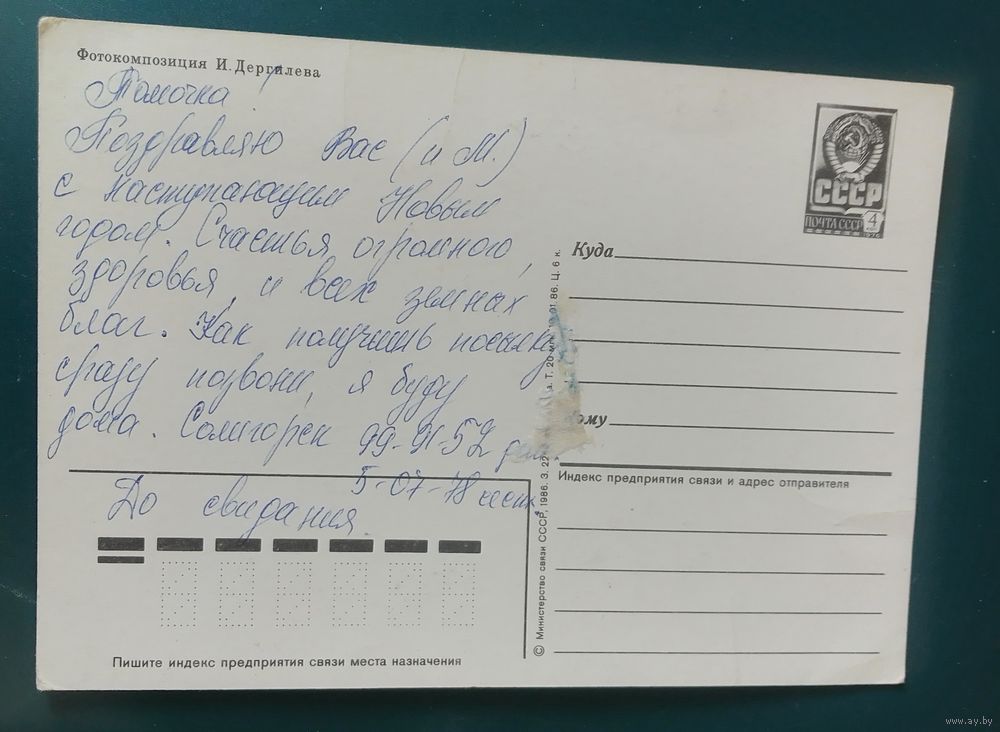 Фотокомпозиция И. Дергилева
Томочка!
Поздравляю Вас (и М.)
с наступающим Новым
годом. Счастья огромного,
здоровья, и всех земных
благ. Как получишь посылку
сразу позвони, я буду
дома. Солигорск 99-91-52
5-07-78
До свидания.
Пишите индекс предприятия связи места назначения
СССР
ПОЧТА СССР 4
1976
Куда
ому
Индекс предприятия связи и адрес отправителя
© Министерство связи СССР, 1986. З. 22 а. Т. 20 01.86. Ц. 6 к.
www.ay.by